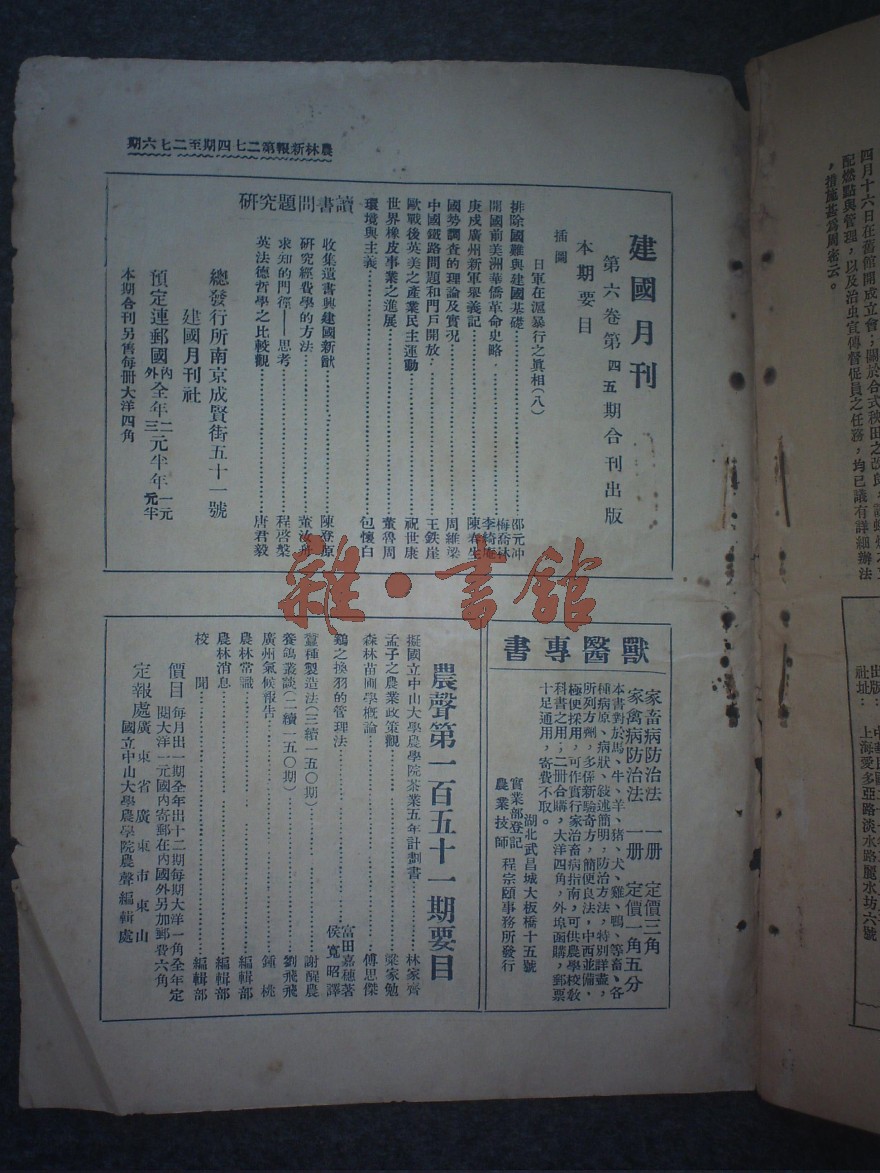 農林新報第二七四期至二七六期
建國月刊
第六卷第四五期合刊出版
本期要目
插圖
日軍在滬暴行之真相(八)
排除國難與建國基礎……邵元冲
開國前美洲華僑革命史略……梅喬林 李綺庵
庚戌廣州新軍舉義記……陳春生
國勢調查的理論及實況……周維梁
中國鐵路問題和門戶開放……王鉄崖
歐戰後英美之產業民主運動……祝世康
世界橡皮事業之進展……董魯周
環境與主義……包懷白
讀書問題研究
收集遺書與建國新猷……陳登原
研究經費學的方法……董汝舟
求知的門徑——思考……程啓槃
英法德哲學之比較觀……唐君毅
總發行所南京成賢街五十一號
建國月刊社
預定連郵國內外全年二元三元半年一元元半
本期合刊另售每冊大洋四角
獸醫專書
家畜病防治法 一册 定價三角
家禽病防治法 一册 定價一角五分
本書對於馬、牛、羊、猪、犬、雞、鴨、等畜、各
種病原、病狀、敍述簡明,防治方法,特別詳盡,
所列方劑,多係新驗奇方,簡便良法,中西並備,
極便採用,可作實行家治畜病指南,可供農學校敎
科書之用,二冊合購,大洋四角,外埠函購,郵票
十足通用,寄費不取。
湖北武昌城大板橋十五號
實業部登記
農業技師 程宗頤事務所發行
農聲第一百五十一期要目
擬國立中山大學農學院茶業五年計劃書……林家齊
孟子之農業政策觀……梁家勉
森林苗圃學概論……傅思傑
鷄之換羽的管理法……富田嘉穗著 侯寬昭譯
蠶種製造法(三續一五〇期)……謝醒農
養鴿叢談(二續一五〇期)……劉飛飛
廣州氣候報告……鍾桃
農林常識……編輯部
農林消息……編輯部
校聞……編輯部
價目 每月出一期全年出十二期每期大洋一角全年定
閱大洋一元國內寄郵在內國外另加郵費六角
定報處 廣東省廣東市東山
國立中山大學農學院農聲編輯處
四月十六日在舊館開成立會;關於合式秧田之改良,
配燃點與管理,以及治虫宣傳督促員之任務,均已議有詳細辦法
,措施甚爲周密云。
社址:上海愛多亞路淡水路麗水坊六號
雜·書館